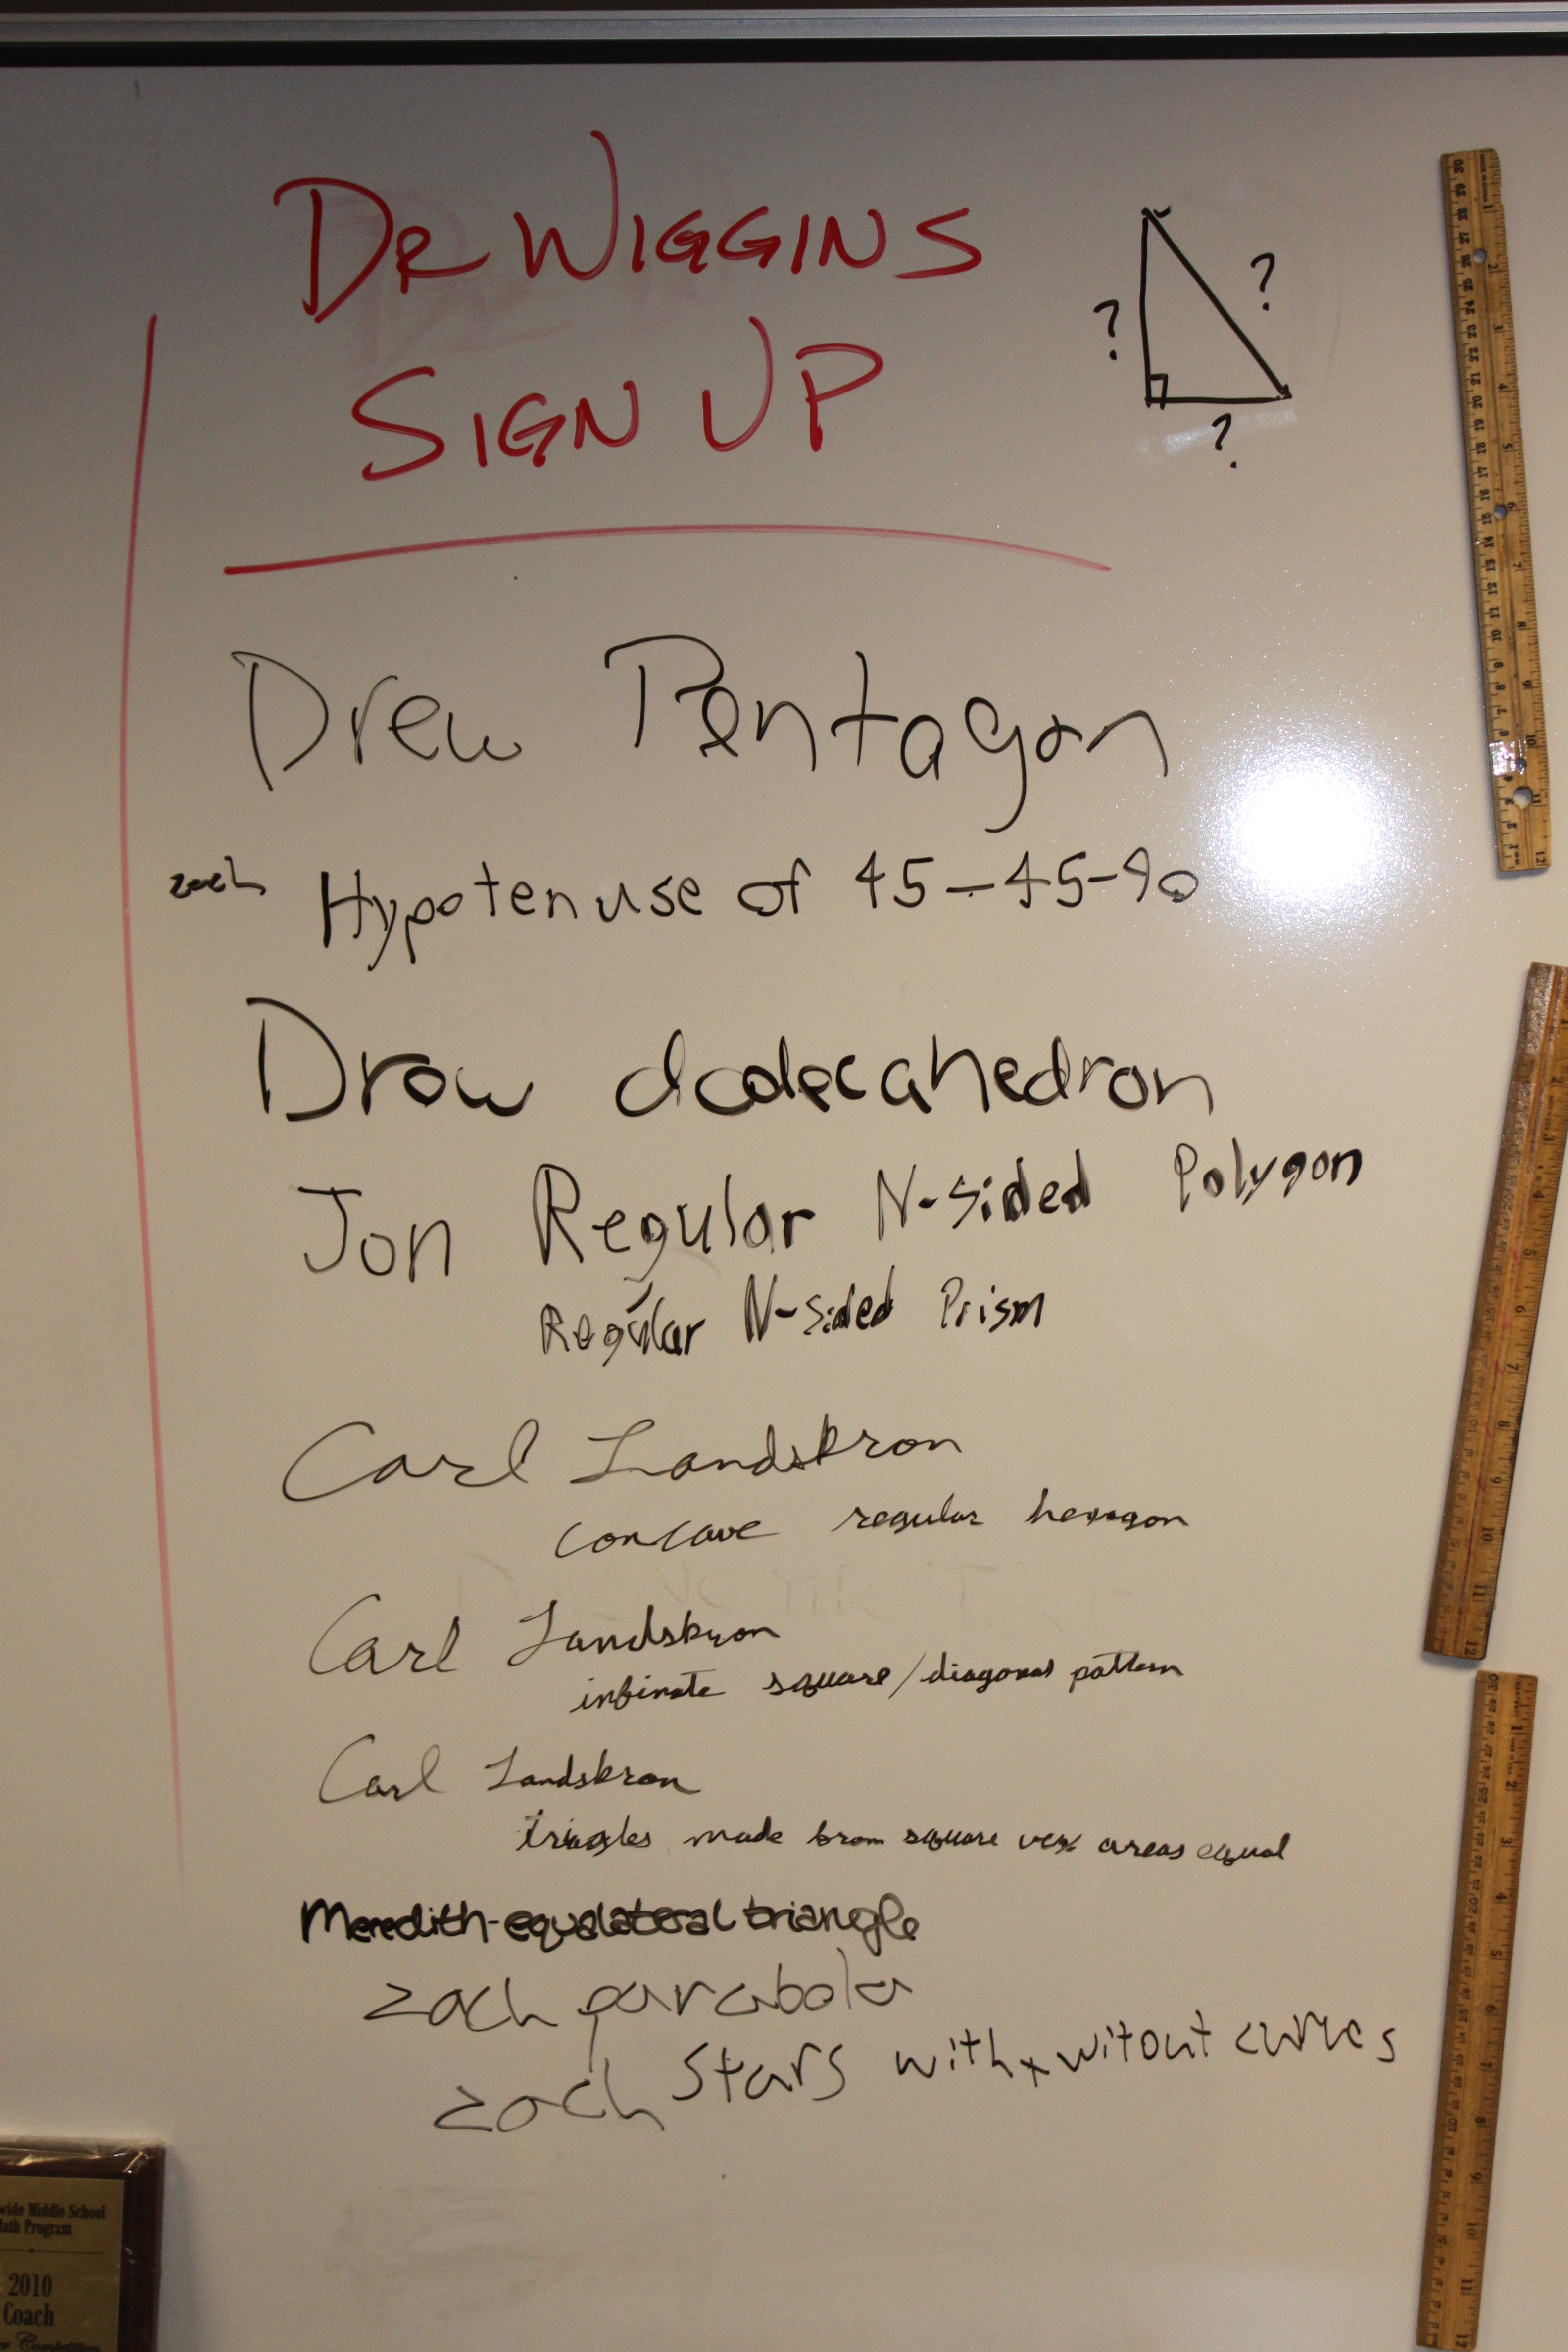 DR WIGGINS
SIGN UP
?
?
?
Drew Pentagon
zach Hypotenuse of 45-45-90
Drew dodecahedron
Jon Regular N-sided Polygon
Regular N-sided Prism
Carl Landskron
concave regular hexagon
Carl Landskron
infinate square/diagonal pattern
Carl Landskron
triangles made from square areas equal
Meredith-equalateral triangle
zach parabola
zach stars with + witout curves
wide Middle School
Math Program
2010
Coach
Competition